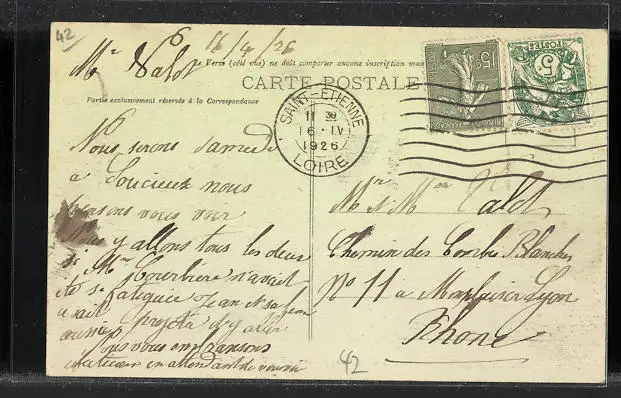 42
16/4/26
Mr Valot
Verso (côté vue) ne doit comporter aucune inscription man
CARTE POSTALE
Partie exclusivement réservée à la Correspondance
15c
POSTES
5
SAINT-ETIENNE
11 30
16 · IV
1926
LOIRE
Nous serons samedi
a Soucieux nous
pensons vous voir
Nous y allons tous les deux
si Mme Courbiere n'avait
été si fatiguée Jean et sa fem
avait
aussi projeté d'y aller
Nous vous embrassons
en attendant de vous voir
Mr et Mme Valot
Chemin des Combes Blanches
No 11 a Monplaisir Lyon
Rhone
42